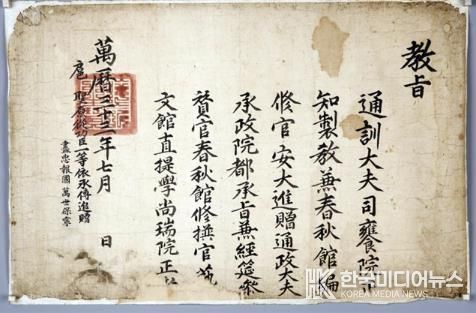 教旨
通訓大夫司饔院
知製教兼春秋館編
修官安大進贈通政大夫
承政院都承旨兼經筵參
贊官春秋館修撰官藝
文館直提學尚瑞院正者
萬曆三十三年七月 日
扈 聖原從功臣一等依承傳追贈
盡忠報國 萬世保寧
한국미디어뉴스
KOREA MEDIA NEWS